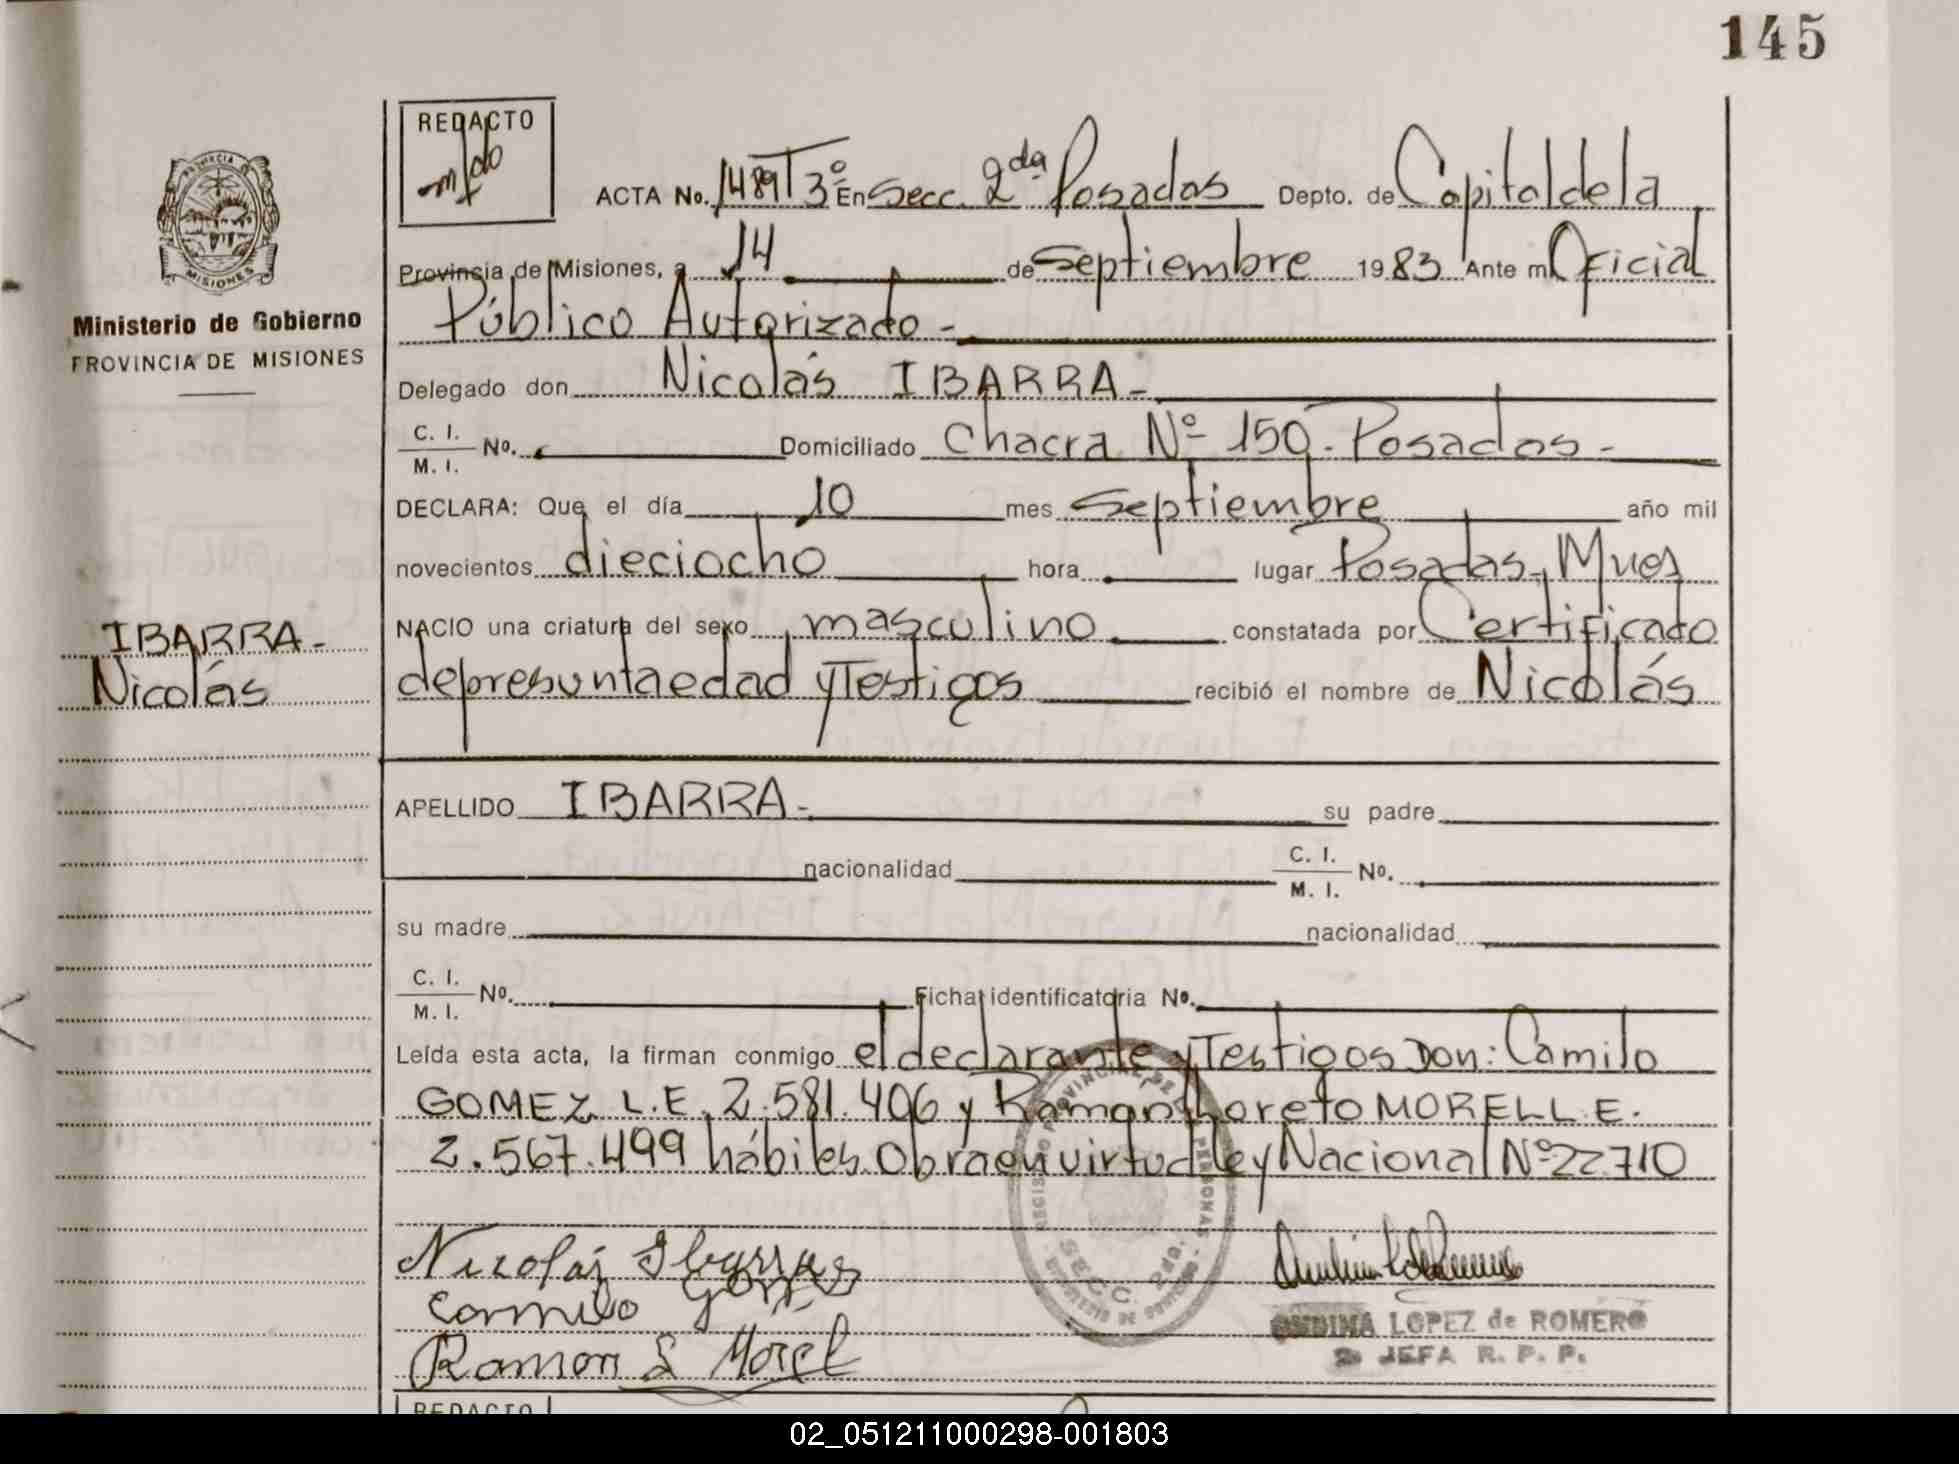 145
REDACTO
PROVINCIA
MISIONES
Ministerio de Gobierno
PROVINCIA DE MISIONES
ACTA No. 1489 T 3º En Secc. 2da Posadas Depto. de Capital de la
Provincia de Misiones, a 14 de Septiembre 1983 Ante mí Oficial
Público Autorizado -
Delegado don Nicolás IBARRA -
C. I.
M. I. No. Domiciliado Chacra Nº 150 - Posadas -
DECLARA: Que el día 10 mes Septiembre año mil
novecientos dieciocho hora lugar Posadas, Mnes
NACIO una criatura del sexo masculino constatada por Certificado
de presunta edad y Testigos recibió el nombre de Nicolás
IBARRA -
Nicolás
APELLIDO IBARRA - su padre
nacionalidad C. I.
M. I. No.
su madre nacionalidad
C. I.
M. I. No. Ficha identificatoria No.
Leída esta acta, la firman conmigo el declarante y Testigos Don: Camilo
GOMEZ L.E. 2.581.406 y Ramon Loreto MOREL L.E.
2.567.499 hábiles. Obra en virtud Ley Nacional Nº 22710
Nicolás Ibarra
Camilo Gomez
Ramon L Morel
SECC. 2da.
LOPEZ de ROMERO
JEFA R. P. P.
REDACTO
02_051211000298-001803